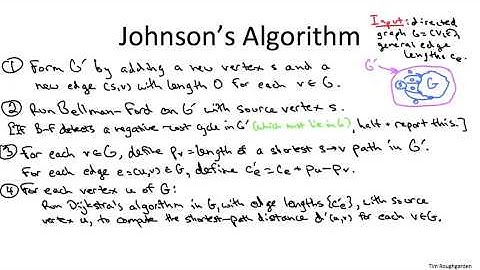 Johnson's Algorithm
Input: directed
graph G=(V,E),
general edge
lengths ce.
G'
G
s
① Form G' by adding a new vertex s and a
new edge (s,v) with length 0 for each v∈G.
② Run Bellman-Ford on G' with source vertex s.
[If B-F detects a negative-cost cycle in G' (which must lie in G), halt + report this.]
③ For each v∈G, define pv = length of a shortest s→v path in G'.
For each edge e=(u,v)∈G, define c'e = ce + pu - pv.
④ For each vertex u of G:
Run Dijkstra's algorithm in G, with edge lengths {c'e}, with source
vertex u, to compute the shortest-path distance d'(u,v) for each v∈G.
Tim Roughgarden